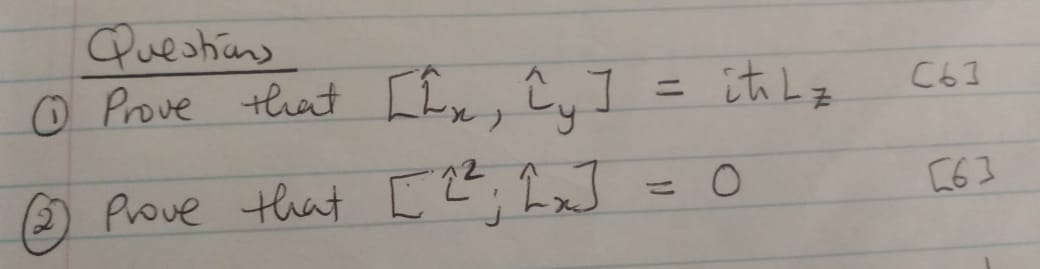 Questions
① Prove that [L̂x, L̂y] = iħLz [6]
② Prove that [L̂², L̂x] = 0 [6]